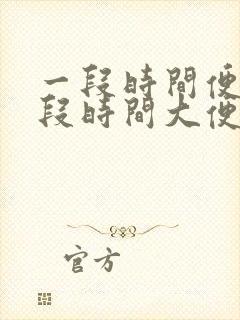 一段時間便
段時間大便
官方